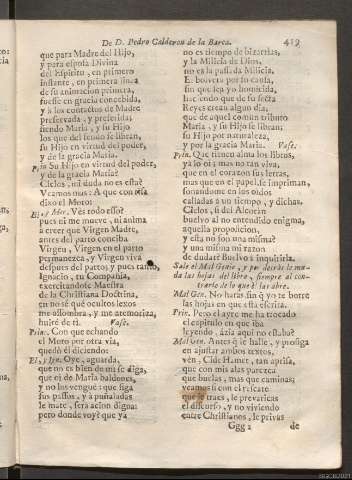 De D. Pedro Calderon de la Barca. 419
que para Madre del Hijo,
y para esposa Divina
del Espiritu, en primero
instante, en primera linea
de su animacion primera,
fuesse en gracia concebida,
y à los contactos de Madre
preservada, y preferida;
siendo Maria, y su Hijo
los que del feudo se libran,
su Hijo en virtud del poder,
y de la gracia Maria.
Prin. Su Hijo en virtud del poder,
y de la gracia Maria?
Cielos, mi duda no es esta?
Veamos mas: A que con risa
dixo el Moro:
El, y Mor. Vès todo esso?
pues ni me mueve, ni anima
à creer que Virgen Madre,
antes del parto conciba
Virgen, Virgen en el parto
permanezca, y Virgen viva
despues del parto; y pues tanto,
Ignacio, tu Compañia,
exercitandose Maestra
de la Christiana Doctrina,
en no sè què ocultos lexos
me assombra, y me atemoriza,
huirè de ti. Vase.
Prin. Con que echando
el Moro por otra via,
quedò èl diciendo:
El, y Ign. Oye, aguarda,
que no es bien de mi se diga,
que èl de Maria baldones,
y no los venguè: que siga
sus passos, y à puñaladas
le mate, serà accion digna:
pero donde voy? que ya
no es tiempo de bizarrias,
y la Milicia de Dios,
no es la passada Milicia.
E bolverè por tu causa,
sin que sea yo homicida,
haciendo que de su secta
Reyes crean algun dia,
que de aquel comun tributo
Maria, y su Hijo se libran;
su Hijo por naturaleza,
y por la gracia Maria. Vase.
Prin. Que tienen alma los libros,
ya lo oì; mas no tan viva,
que en el corazon sus letras,
mas que en el papel se impriman,
sonandome en los oidos
calladas à un tiempo, y dichas.
Cielos, si del Alcoràn
buelvo al no entendido enigma,
aquella proposicion,
y esta no son una misma?
y una misma mi razon
de dudar? Buelvo à inquirirla.
Sale el Mal Genio, y por detràs le muda
las hojas del libro, siempre al contrario
de lo que èl las abre.
Mal Gen. No haràs, sin que yo te borre
las hojas en que està escrita.
Prin. Pero el ayre me ha trocado
el capitulo en que iba
leyendo, àzia aqui no estaba?
Mal Gen. Antes que le halle, y prosiga
en ajustar ambos textos,
vèn, Cide Hamet, tan aprisa,
que con mis alas parezca
que buelas, mas que caminas;
veamos si con el rescate
que le traes, le prevaricas
el discurso, y no viviendo
entre Christianos, le privas
Ggg 2 de